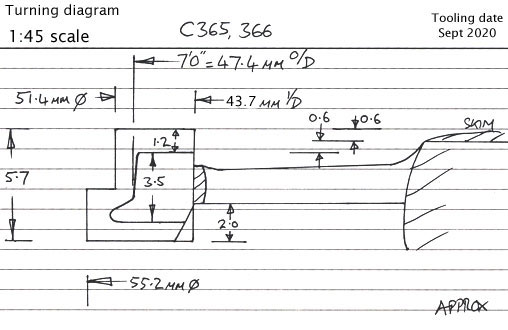 Turning diagram
1:45 scale
C365, 366
Tooling date
Sept 2020
7'0"=47.4MM O/D
51.4MM Ø
43.7MM I/D
0.6
0.6
SKIM
1.2
5.7
3.5
2.0
55.2MM Ø
APPROX